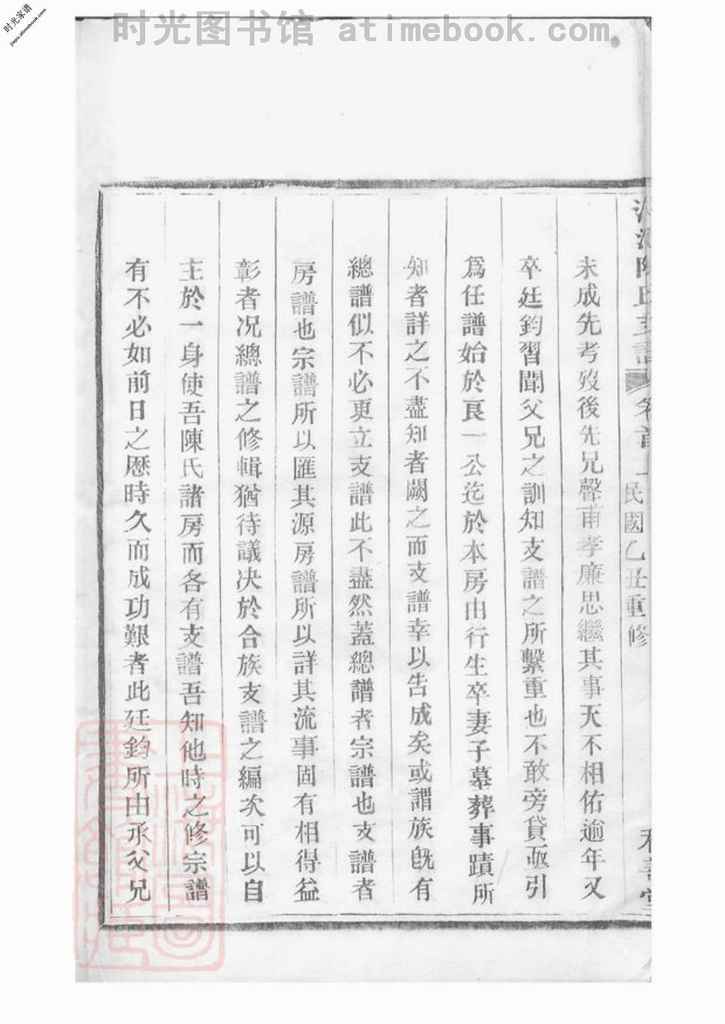 时光图书馆 atimebook.com
时光家谱
民國乙丑重修
未成先考歿後先兄聲甫孝廉思繼其事天不相佑逾年又
卒廷鈞習聞父兄之訓知支譜之所繫重也不敢旁貸亟引
爲任譜始於良一公迄於本房由行生卒妻子墓葬事蹟所
知者詳之不盡知者闕之而支譜幸以告成矣或謂族旣有
總譜似不必更立支譜此不盡然蓋總譜者宗譜也支譜者
房譜也宗譜所以匯其源房譜所以詳其流事固有相得益
彰者况總譜之修輯猶待議决於合族支譜之編次可以自
主於一身使吾陳氏諸房而各有支譜吾知他時之修宗譜
有不必如前日之歷時久而成功艱者此廷鈞所由承父兄